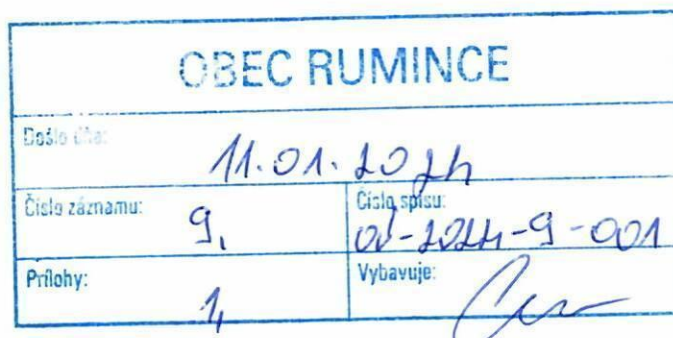 OBEC RUMINCE
Došlo dňa:
11.01.2024
Číslo záznamu:
9,
Číslo spisu:
-2024-9-001
Prílohy:
1,
Vybavuje: